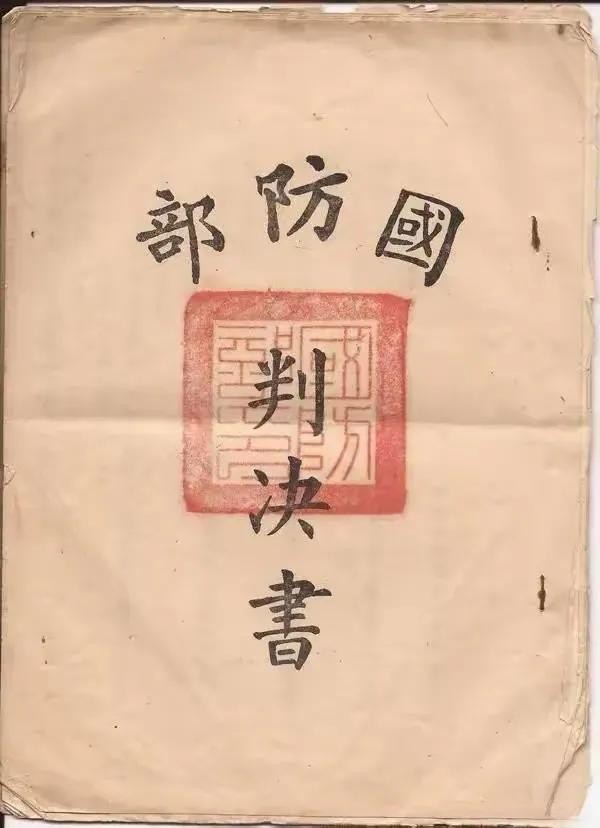 國防部
判决書
國防部印